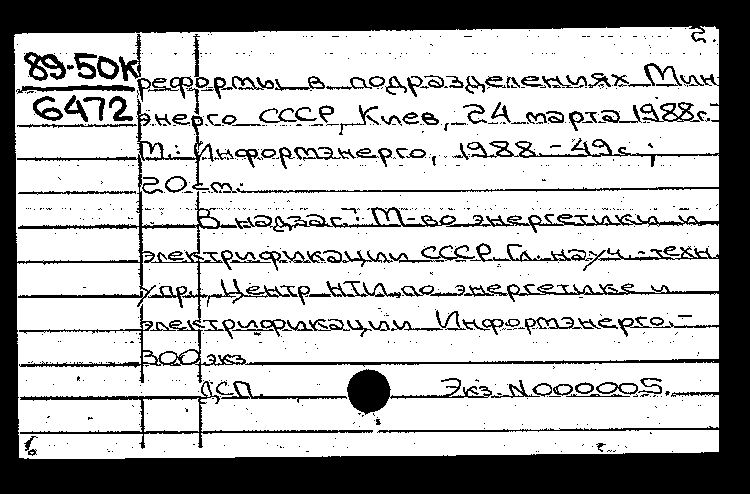 2.
89-50К
6472
реформы в подразделениях Мин
энерго СССР, Киев, 24 марта 1988г.-
М.: Информэнерго, 1988.-49с.;
20 см.
В надзаг.: М-во энергетики и
электрификации СССР. Гл. науч.-техн.
упр., Центр НТИ по энергетике и
электрификации Информэнерго.-
300 экз.
ДСП. Экз. N 000005.